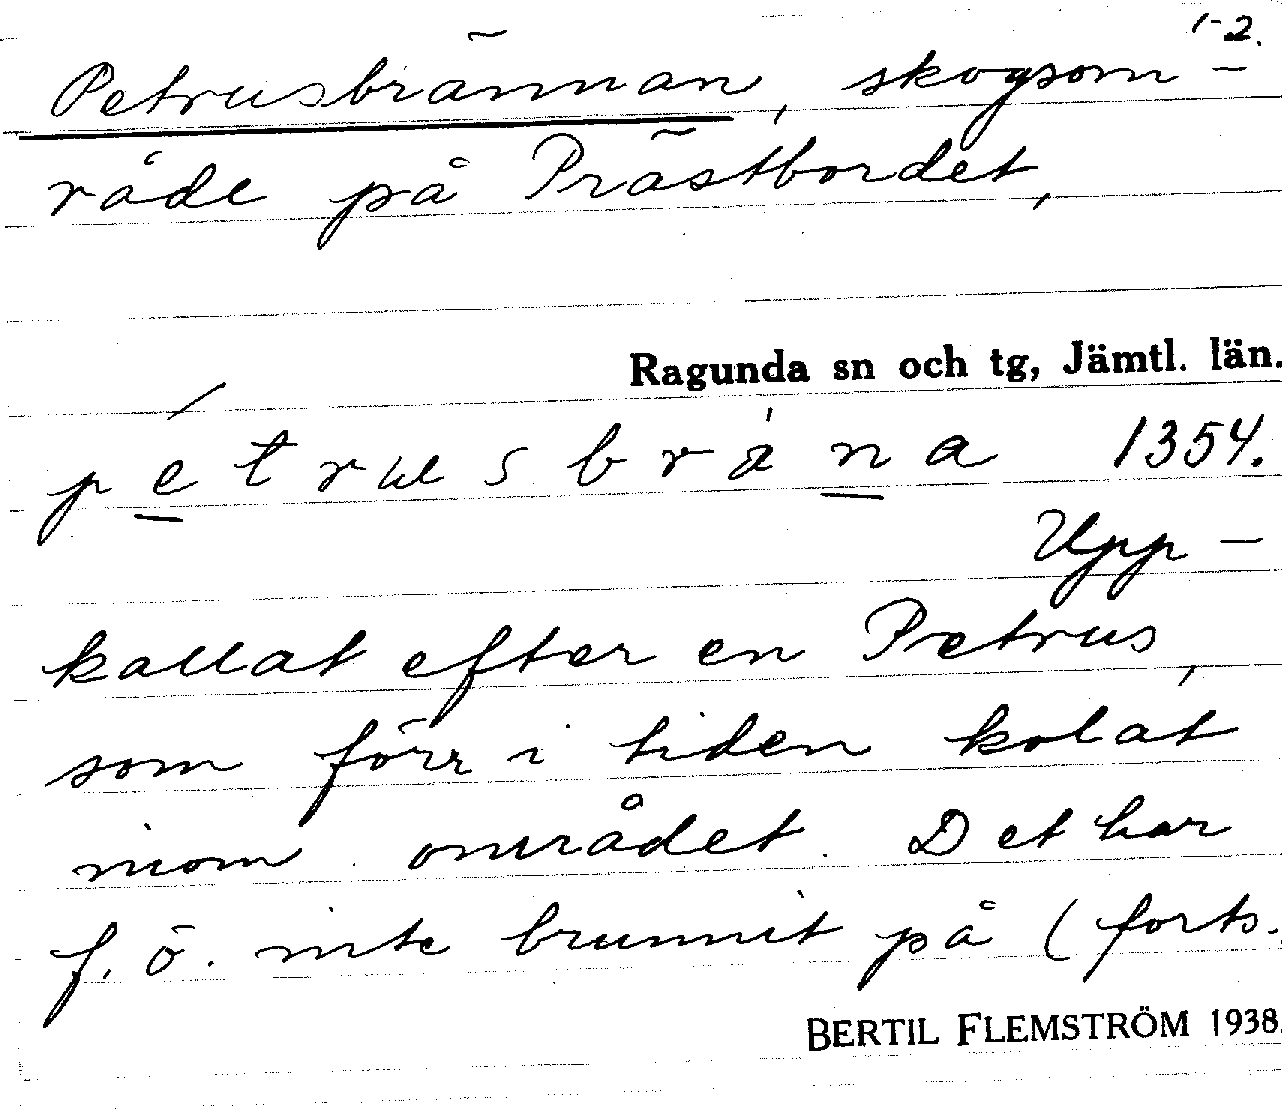 1-2.
Petrusbrännan, skogsom-
råde på Prästbordet,
Ragunda sn och tg, Jämtl. län.
pétrusbràna 1354.
Upp-
kallat efter en Petrus,
som förr i tiden kolat
inom området. Det har
f. ö. inte brunnit på (forts.
BERTIL FLEMSTRÖM 1938.